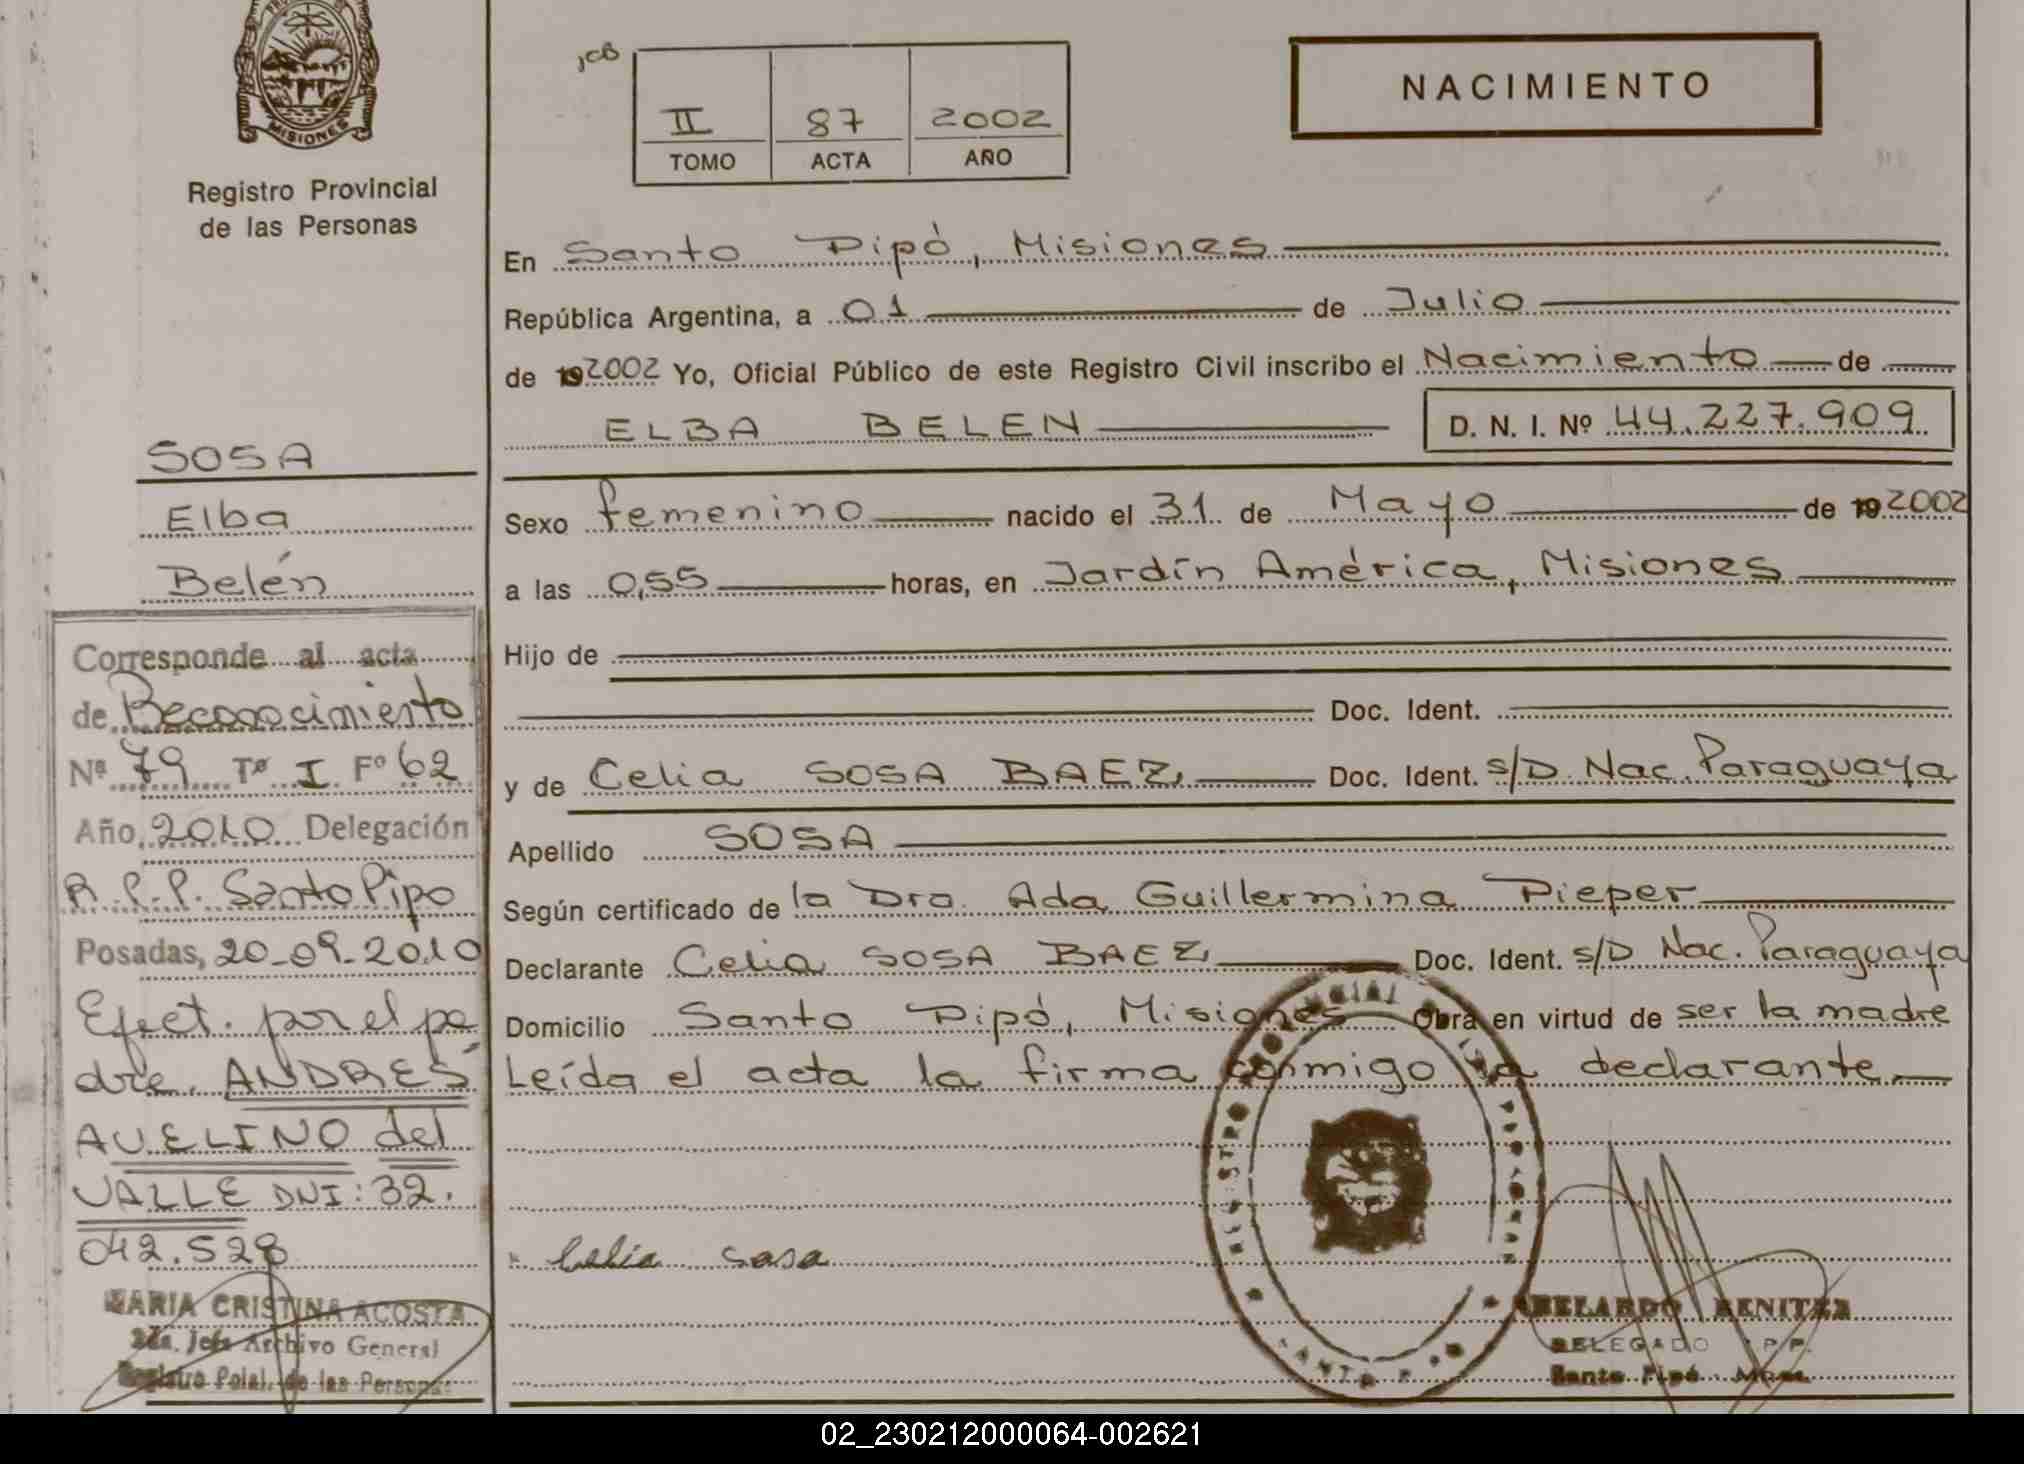 MISIONES
Registro Provincial
de las Personas
II 87 2002
TOMO ACTA AÑO
NACIMIENTO
En Santo Pipó, Misiones
República Argentina, a 01 de Julio
de 19 2002 Yo, Oficial Público de este Registro Civil inscribo el Nacimiento de
ELBA BELEN D. N. I. Nº 44.227.909
Sexo femenino nacido el 31 de Mayo de 19 2002
a las 0,55 horas, en Jardín América, Misiones
Hijo de
Doc. Ident.
y de Celia SOSA BAEZ Doc. Ident. s/D. Nac. Paraguaya
Apellido SOSA
Según certificado de la Dra. Ada Guillermina Pieper
Declarante Celia SOSA BAEZ Doc. Ident. s/D Nac. Paraguaya
Domicilio Santo Pipó, Misiones Obra en virtud de ser la madre
Leída el acta la firma conmigo la declarante
Celia Sosa
ABELARDO BENITEZ
DELEGADO R.P.P.
Santo Pipó - Mnes.
SOSA
Elba
Belén
Corresponde al acta
de Reconocimiento
Nº 79 Tº I Fº 62
Año 2010 Delegación
R.P.P. Santo Pipo
Posadas, 20-09-2010
Efect. por el pa
dre. ANDRES
AVELINO del
VALLE DNI: 32.
042.528
MARIA CRISTINA ACOSTA
2da. Jefe Archivo General
Registro Pcial. de las Personas
02_230212000064-002621